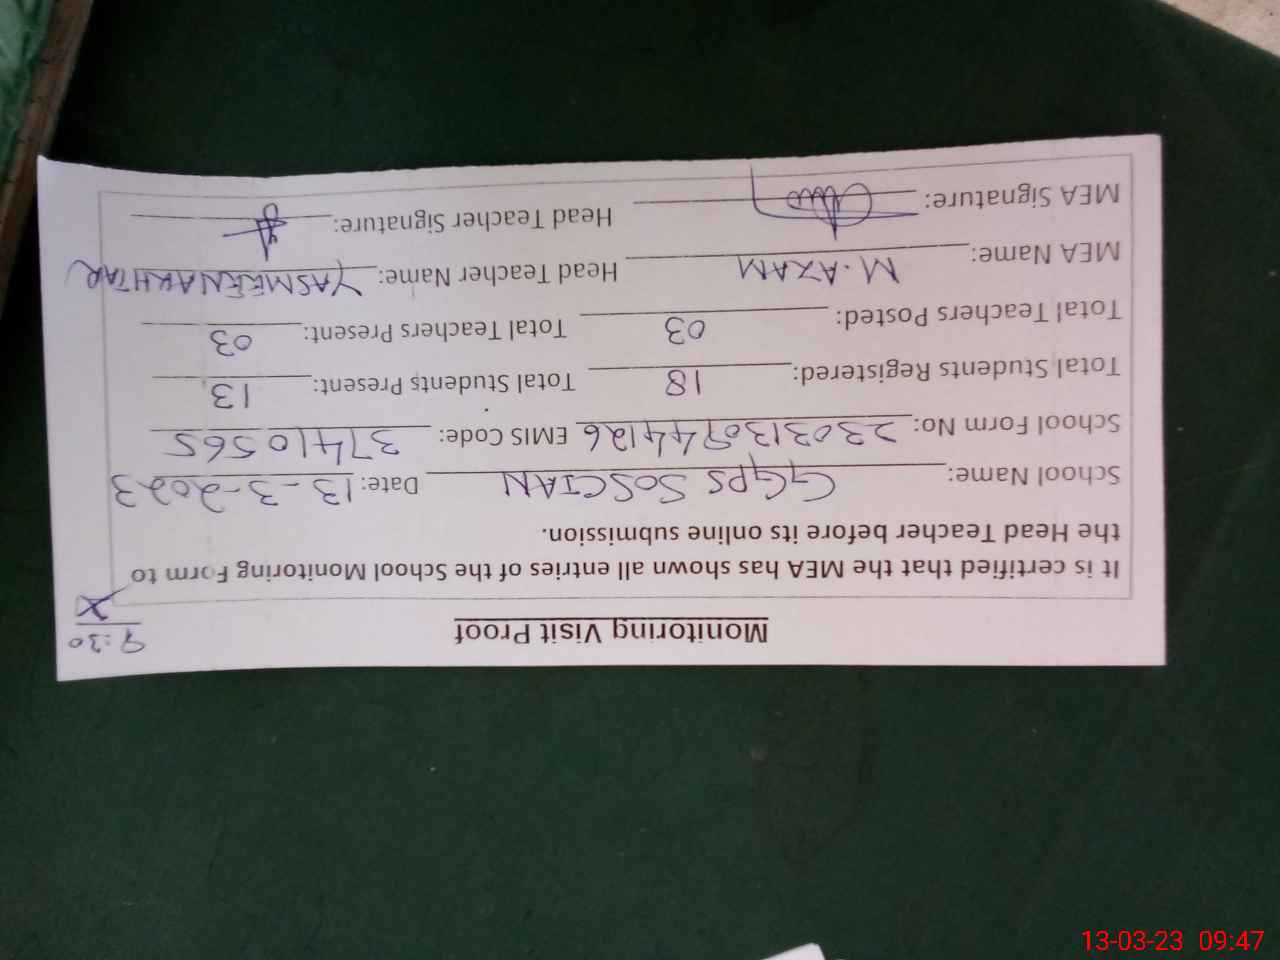 Monitoring Visit Proof
9:30
It is certified that the MEA has shown all entries of the School Monitoring Form to
the Head Teacher before its online submission.
School Name: GGPS SOSCIAN Date: 13-3-2023
School Form No: 2303130944126 EMIS Code: 37410565
Total Students Registered: 18 Total Students Present: 13
Total Teachers Posted: 03 Total Teachers Present: 03
MEA Name: M.AZAM Head Teacher Name: YASMEEN AKHTAR
MEA Signature: Head Teacher Signature:
13-03-23 09:47